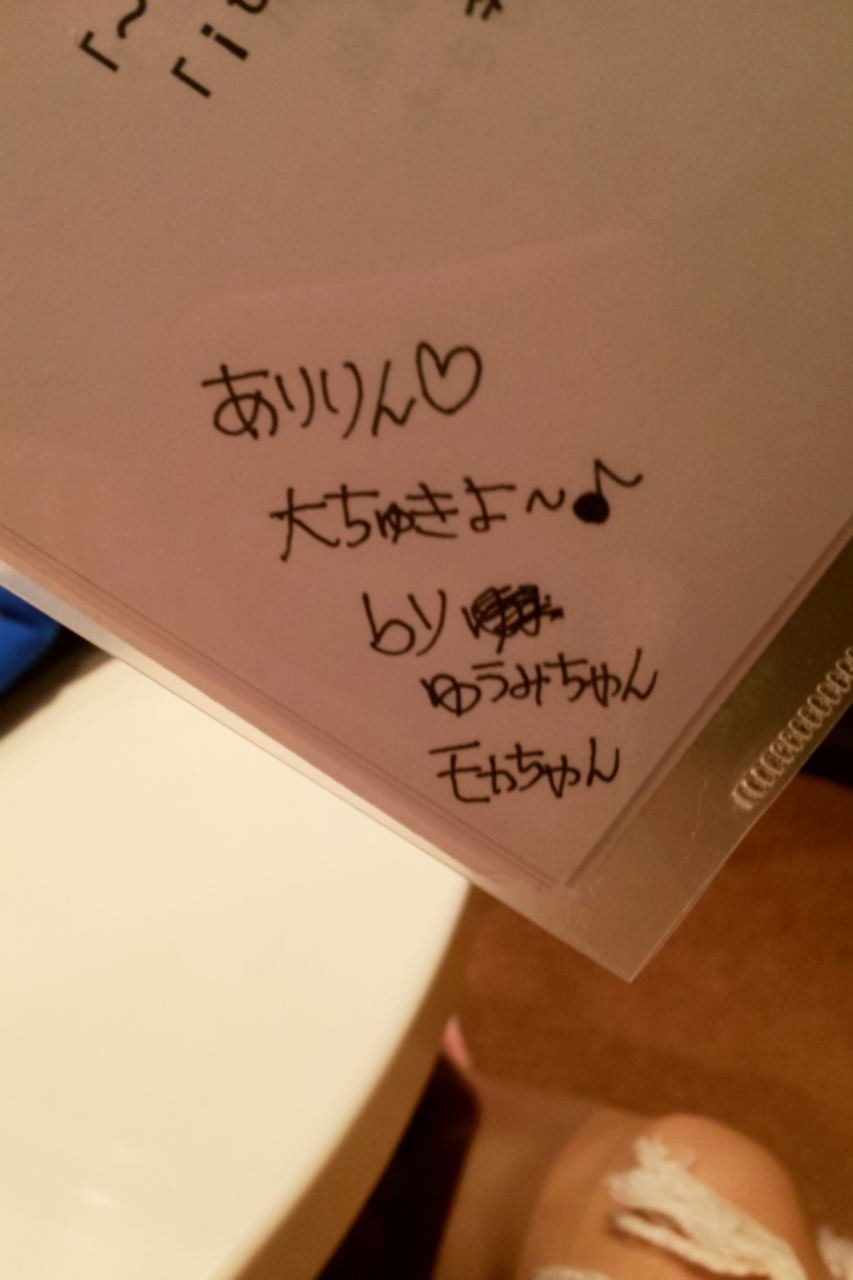 ありりん♡
大ちゅきよ～♪
by
ゆうみちゃん
モカちゃん